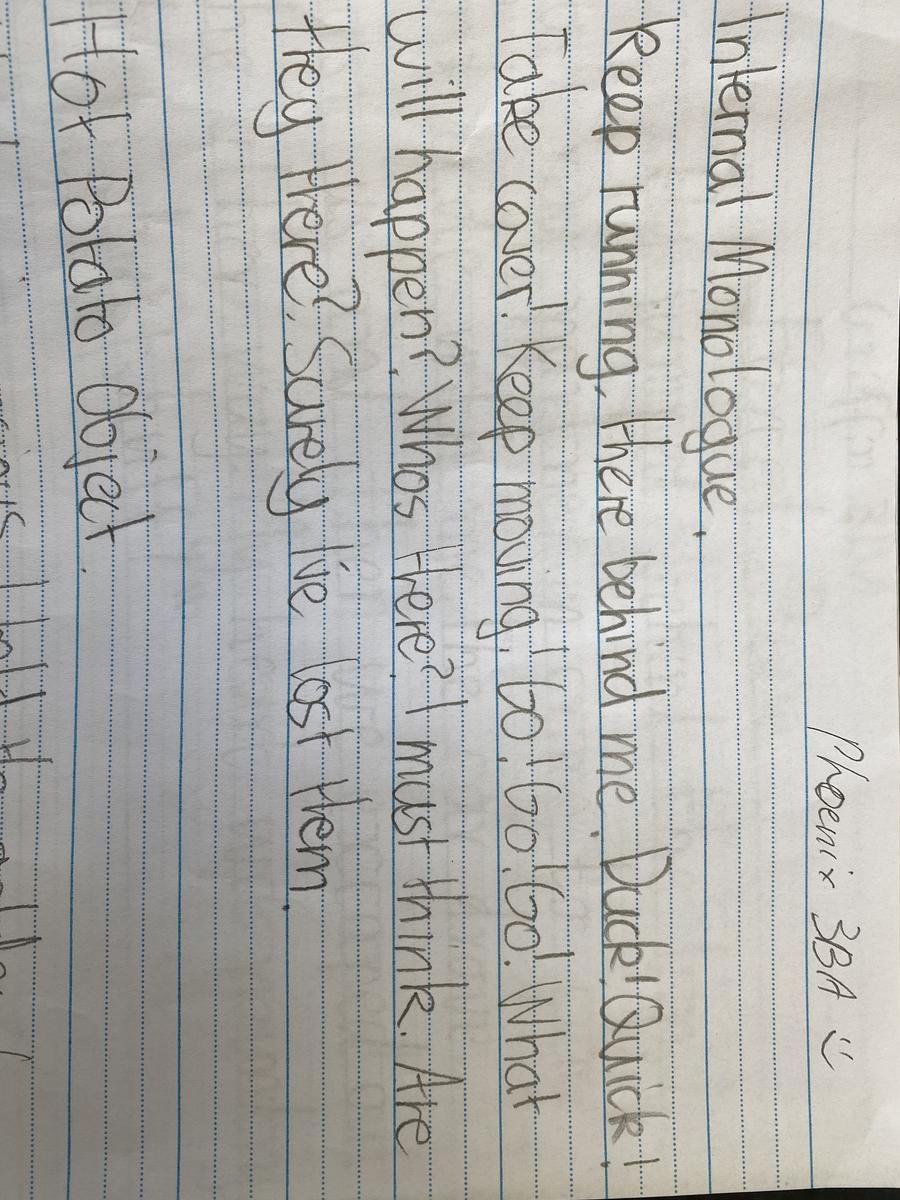 Phoenix 3BA
Internal Monologue.
Keep running, there behind me. Duck! Quick!
Take cover! Keep moving! Go! Go! Go! What
will happen? Whos there? I must think. Are
they there? Surely I've lost them.
Hot Potato Object.
I hold the